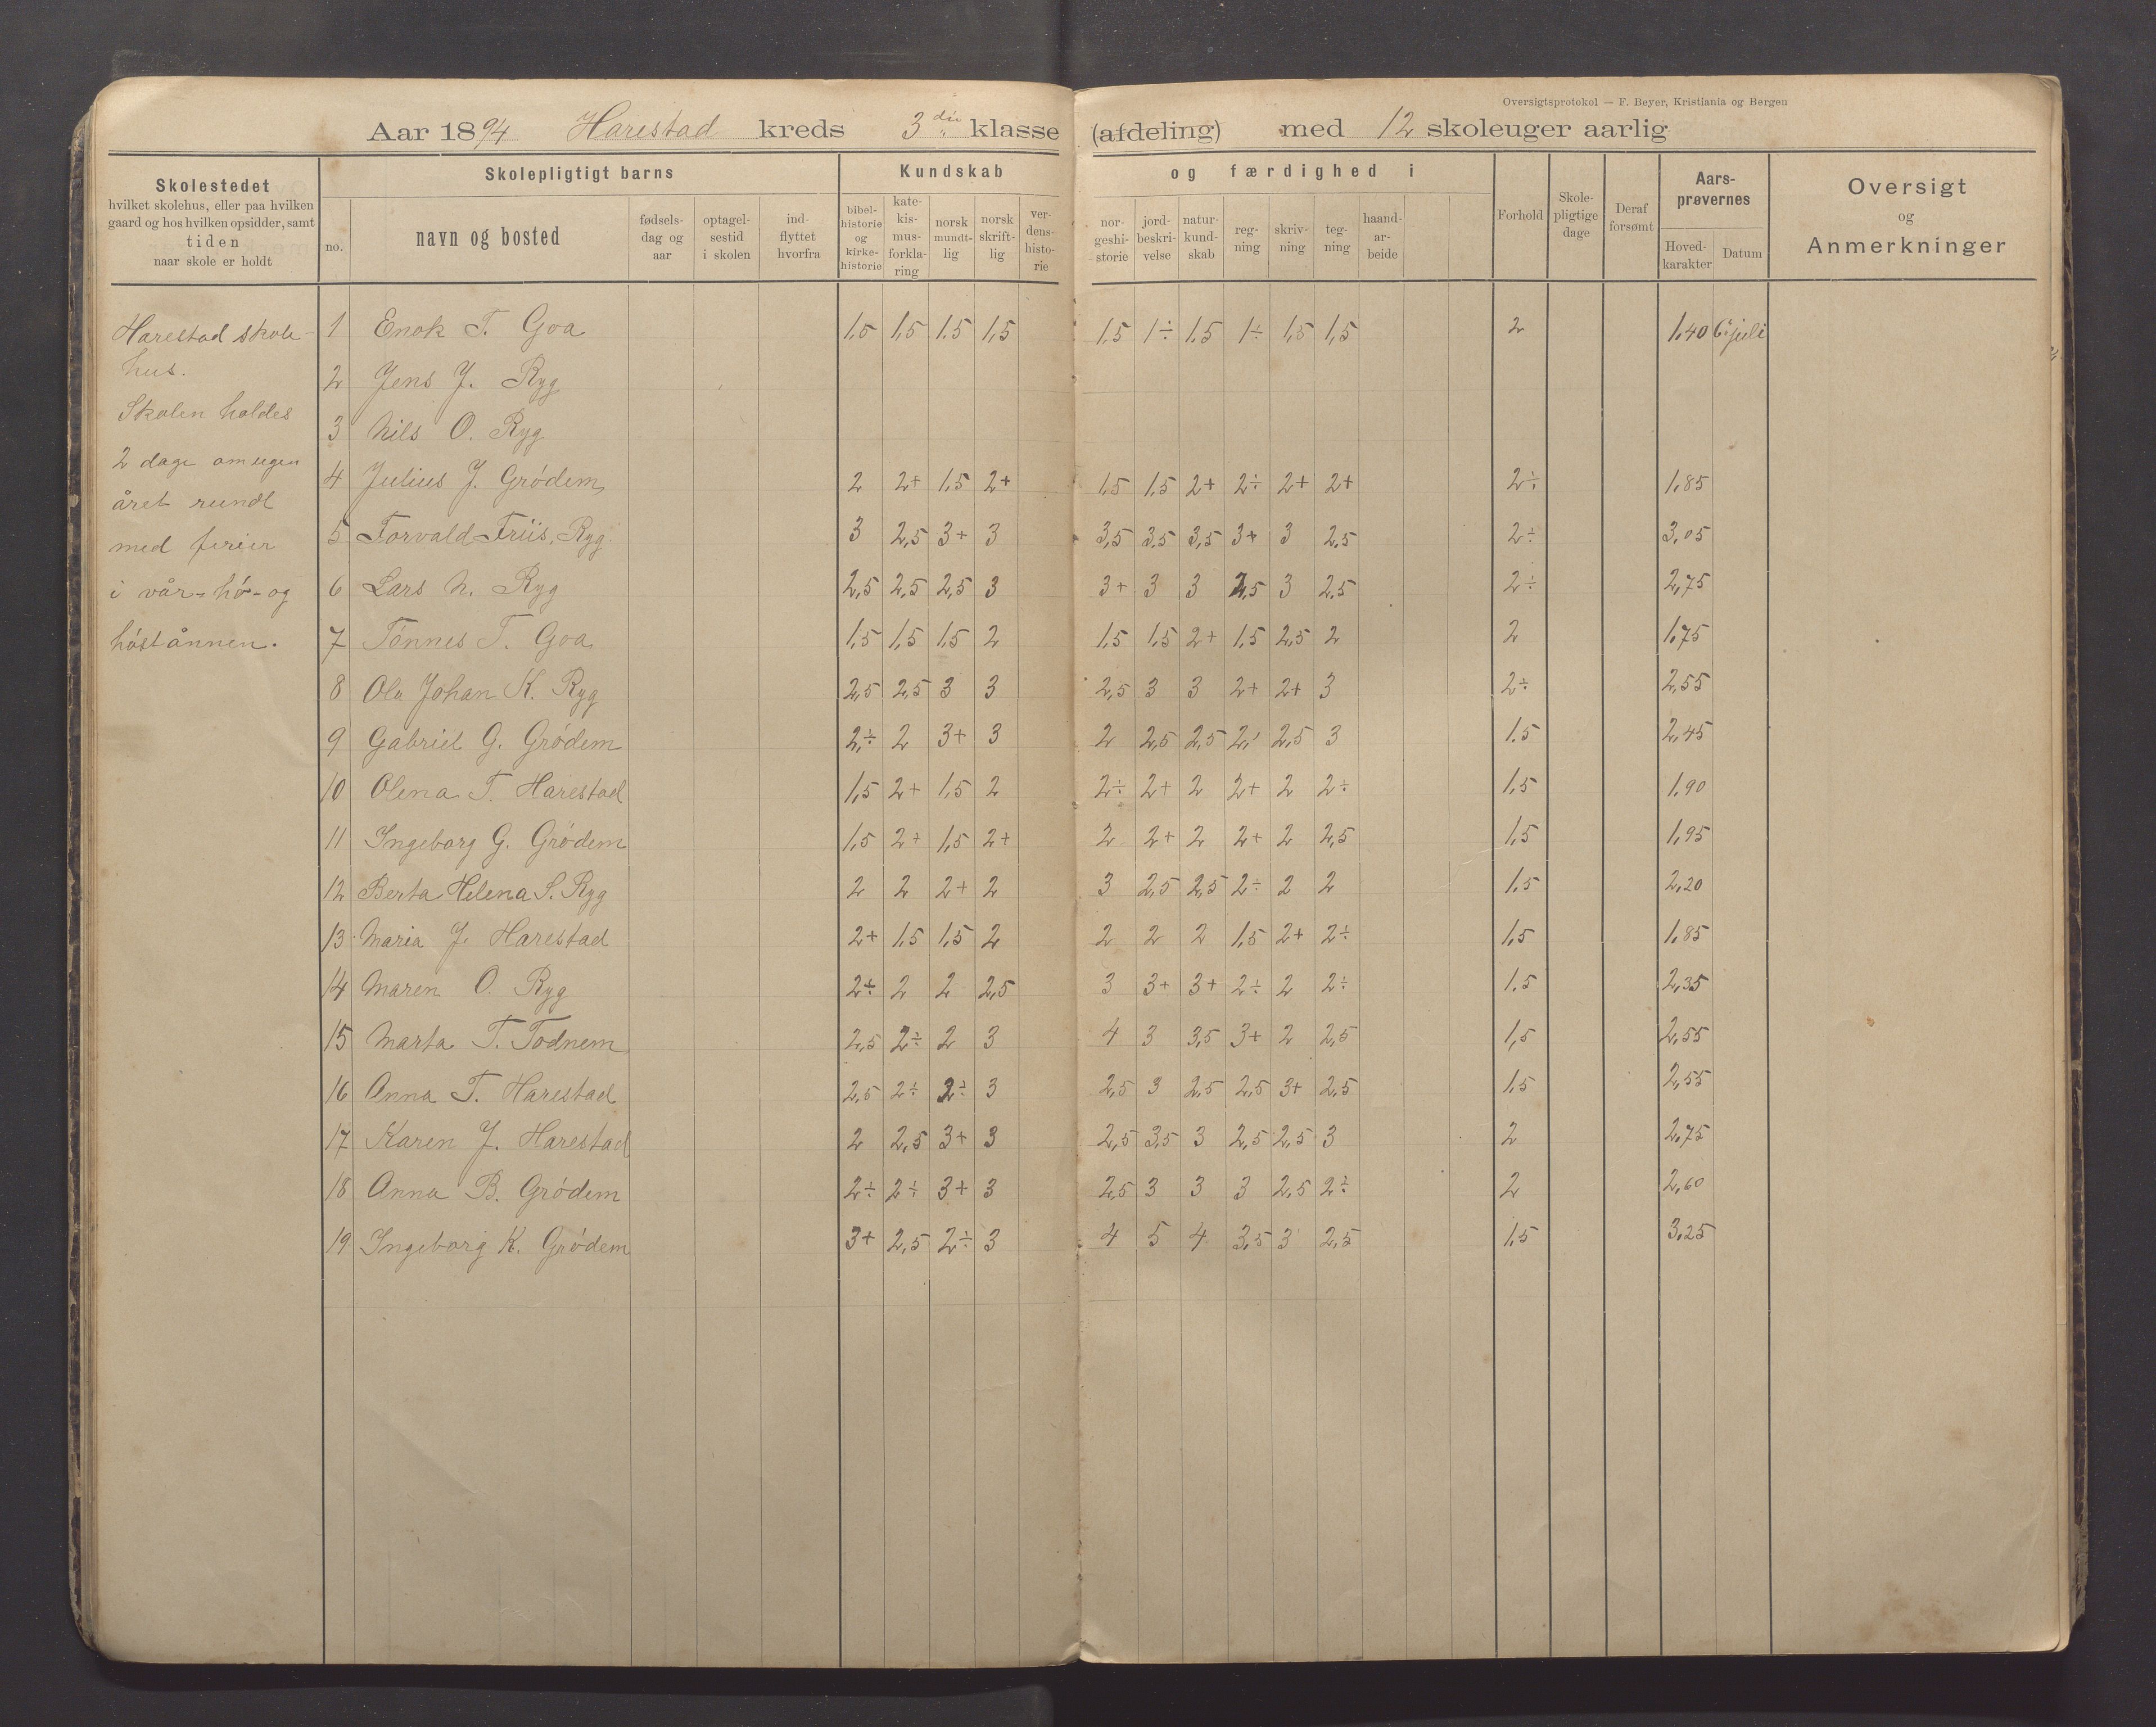 Oversigtsprotokol — F. Beyer, Kristiania og Bergen
Aar 1894 Harestad kreds 3die klasse (afdeling) med 12 skoleuger aarlig
Skolestedet
hvilket skolehus, eller paa hvilken
gaard og hos hvilken opsidder, samt
tiden
naar skole er holdt
Skolepligtigt barns
no.
navn og bosted
fødsels-
dag og
aar
optagel-
sestid
i skolen
ind-
flyttet
hvorfra
Kundskab og færdighed i
bibel-
historie
og
kirke-
historie
kate-
kis-
mus-
forkla-
ring
norsk
mundt-
lig
norsk
skrift-
lig
ver-
dens-
histo-
rie
nor-
geshi-
storie
jord-
beskri-
velse
natur-
kund-
skab
reg-
ning
skriv-
ning
teg-
ning
haand-
ar-
beide
Forhold
Skole-
pligtige
dage
Deraf
forsømt
Aars-
prøvernes
Hoved-
karakter
Datum
Oversigt
og
Anmerkninger
Harestad skole-
hus.
Skolen holdes
2 dage om ugen
året rundt
med ferier
i vår- hø- og
høstånnen.
1 Enok T. Goa 1,5 1,5 1.5 1,5 1,5 1÷ 1,5 1÷ 1,5 1,5 2 1,40 6 juli
2 Jens J. Ryg
3 Nils O. Ryg
4 Julius J. Grødem 2 2+ 1,5 2+ 1,5 1,5 2+ 2÷ 2+ 2+ 2÷ 1,85
5 Torvald Friis, Ryg. 3 2,5 3+ 3 3,5 3,5 3,5 3+ 3 2,5 2÷ 3,05
6 Lars N. Ryg 2,5 2,5 2,5 3 3+ 3 3 2,5 3 2,5 2÷ 2,75
7 Tønnes T. Goa 1,5 1,5 1,5 2 1,5 1,5 2+ 1,5 2,5 2 2 1,75
8 Ola Johan K. Ryg 2,5 2,5 3 3 2,5 3 3 2+ 2+ 3 2÷ 2,55
9 Gabriel G. Grødem 2÷ 2 3+ 3 2 2,5 2,5 2,5 3 1.5 2,45
10 Olena T. Harestad 1,5 2+ 1,5 2 2÷ 2+ 2 2+ 2 2÷ 1,5 1,90
11 Ingeborg G. Grødem 1,5 2+ 1,5 2+ 2 2+ 2 2+ 2 2,5 1,5 1,95
12 Berta Helena S. Ryg 2 2 2+ 2 3 2,5 2,5 2÷ 2 2 1.5 2,20
13 Maria J. Harestad 2+ 1,5 1,5 2 2 2 2 1,5 2+ 2÷ 1,5 1,85
14 Maren O. Ryg 2÷ 2 2 2,5 3 3+ 3+ 2÷ 2 2÷ 1.5 2,35
15 Marta T. Todnem 2,5 2÷ 2 3 4 3 3,5 3+ 2 2,5 1,5 2,55
16 Anna T. Harestad 2,5 2÷ 2÷ 3 2,5 3 2,5 2,5 3+ 2,5 1,5 2,55
17 Karen J. Harestad 2 2,5 3+ 3 2,5 3,5 3 2,5 2,5 3 2 2,75
18 Anna B. Grødem 2÷ 2÷ 3+ 3 2,5 3 3 3 2,5 2÷ 2 2,60
19 Ingeborg K. Grødem 3+ 2,5 2÷ 3 4 5 4 3,5 3 2,5 1,5 3,25